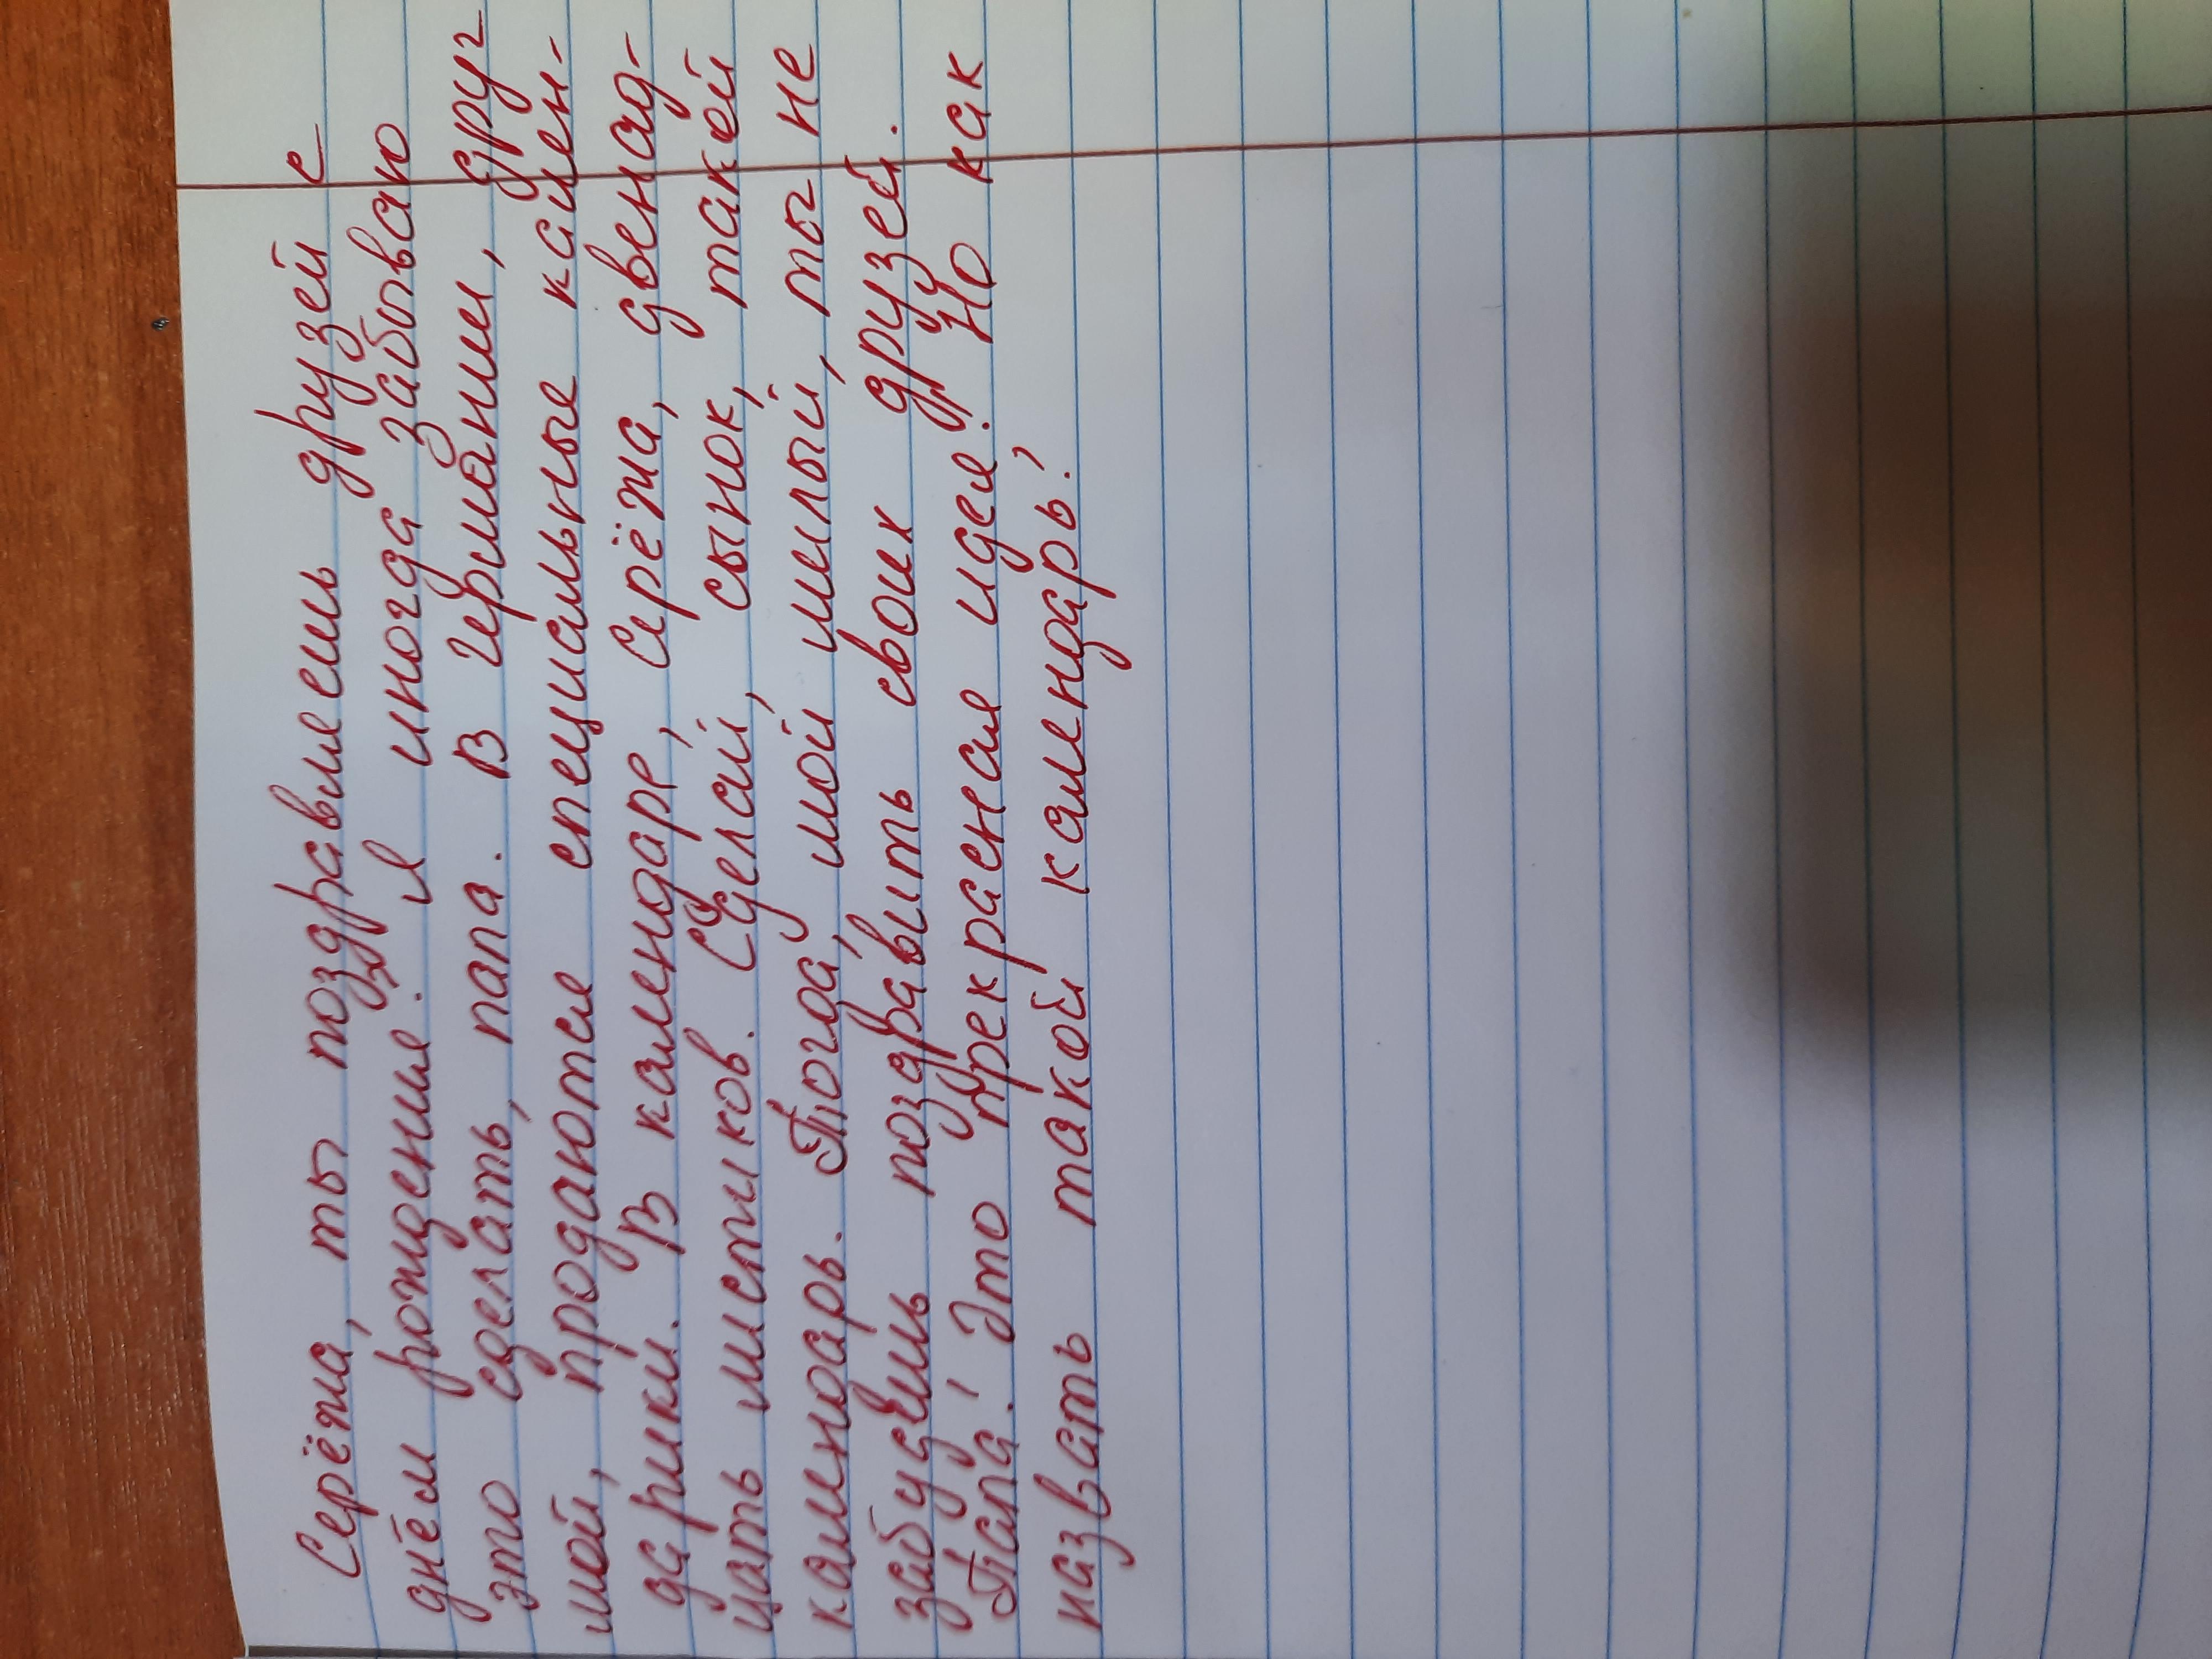 Серёжа, ты поздравляешь друзей с
днём рождения? Я иногда забываю
это сделать, папа. В Германии, друг
мой, продаются специальные кален-
дарики. В календаре, Серёжа, двенад-
цать листиков. Сделай, сынок, такей
календарь. Тогда, мой милый, ты не
забудешь поздравить своих друзей.
Папа! Это прекрасная идея! Но как
назвать такой календарь?